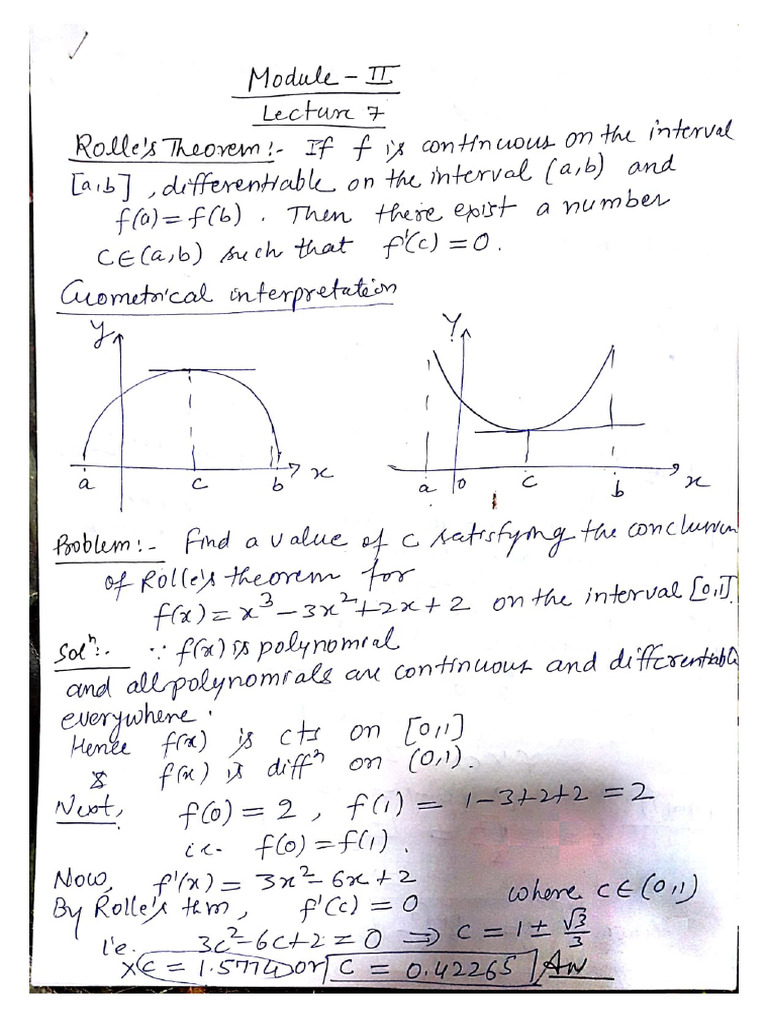 Module - II
Lecture 7
Rolle's Theorem:- If f is continuous on the interval
[a,b] , differentiable on the interval (a,b) and
f(a) = f(b) . Then there exist a number
C∈(a,b) such that f'(c) = 0.
Geometrical interpretation
y
Y
a c b x
a o c b x
Problem:- Find a value of c satisfying the conclusion
of Rolle's theorem for
f(x) = x³ - 3x² + 2x + 2 on the interval [0,1].
Solⁿ:- ∵ f(x) is polynomial
and all polynomials are continuous and differentiable
everywhere.
Hence f(x) is cts on [0,1]
& f(x) is diffⁿ on (0,1).
Next, f(0) = 2 , f(1) = 1-3+2+2 = 2
i.e. f(0) = f(1) .
Now, f'(x) = 3x² - 6x + 2
By Rolle's thm, f'(c) = 0 where c∈(0,1)
i.e. 3c² - 6c + 2 = 0 ⇒ c = 1 ± √3/3
×c = 1.5774 or c = 0.42265 Ans